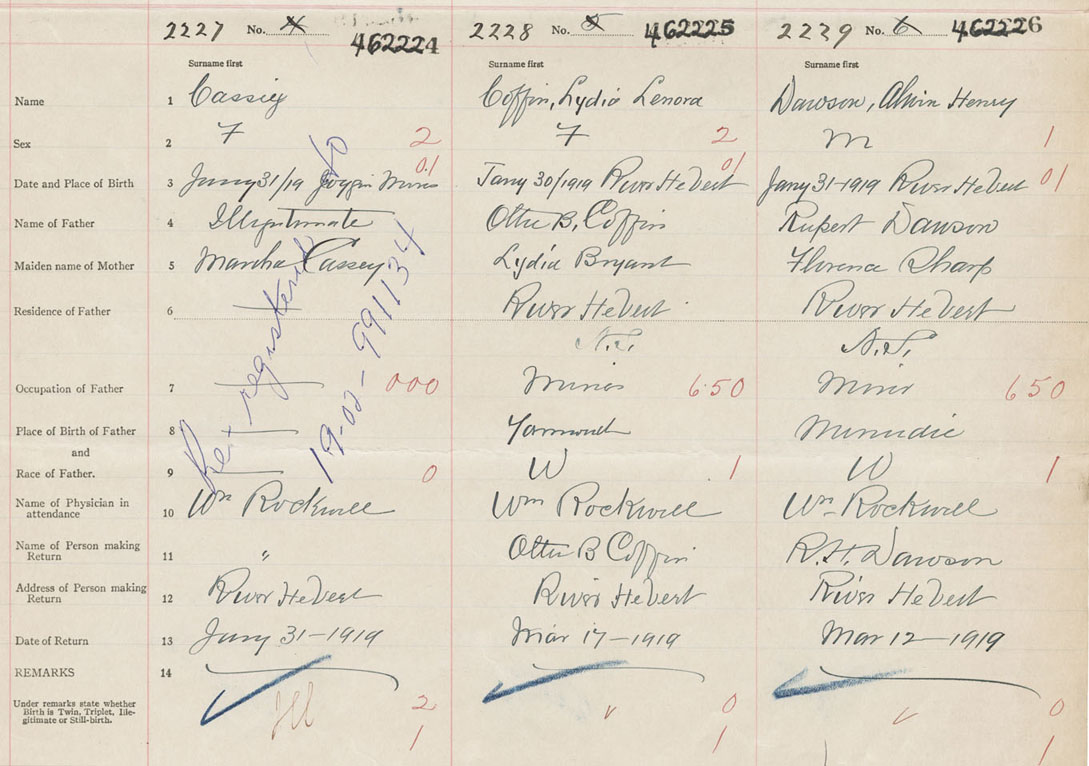 2227 No. 4 462224 2228 No. 5 462225 2229 No. 6 462226
Surname first Surname first Surname first
Name 1 Cassiey Coffin, Lydia Lenora Dawson, Alvin Henry
Sex 2 F 2 F 2 M 1
Date and Place of Birth 3 Jany 31/19 Joggin Mines 01 Jany 30/1919 River Hebert 01 Jany 31-1919 River Hebert 01
Name of Father 4 Illegitimate B. Coffin Rupert Dawson
Maiden name of Mother 5 Martha Cassey Lydia Bryant Florence Sharp
Residence of Father 6 — River Hebert River Hebert
N.S. N.S.
Occupation of Father 7 — 000 Miner 650 Miner 650
Place of Birth of Father 8 — Yarmouth Minudie
and
Race of Father. 9 — 0 W 1 W 1
Name of Physician in
attendance 10 Wm Rockwell Wm Rockwell Wm Rockwell
Name of Person making
Return 11 " B Coffin R. H. Dawson
Address of Person making
Return 12 River Hebert River Hebert River Hebert
Date of Return 13 Jany 31-1919 Mar 17-1919 Mar 12-1919
REMARKS 14
Under remarks state whether
Birth is Twin, Triplet, Ille-
gitimate or Still-birth.
Ill 2 0 0
1 1 1
Re-registered
19-02-991134